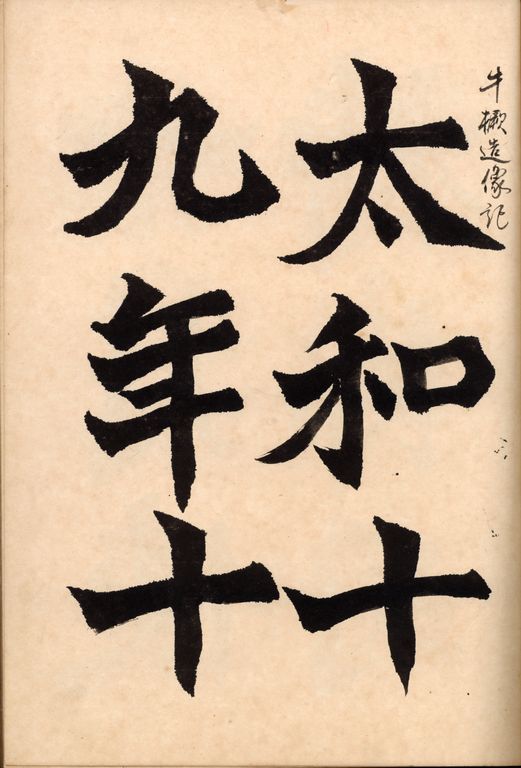 牛橛造像記
太和十
九年十